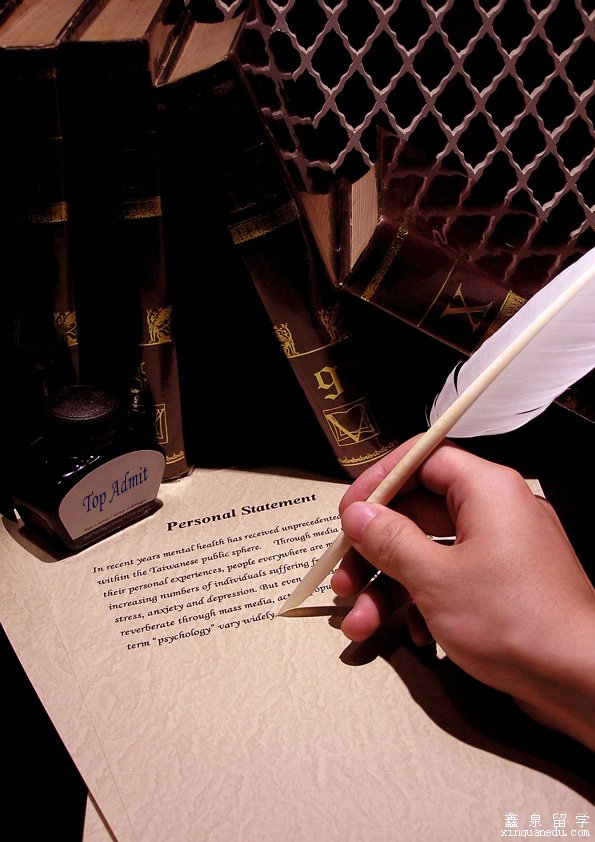 X
9
Top Admit
Personal Statement
In recent years mental health has received unprecedented
within the Taiwanese public sphere. Through media
their personal experiences, people everywhere are
increasing numbers of individuals suffering
stress, anxiety and depression. But even
reverberate through mass media,
term "psychology" vary widely.
鑫泉留学
xinquanedu.com